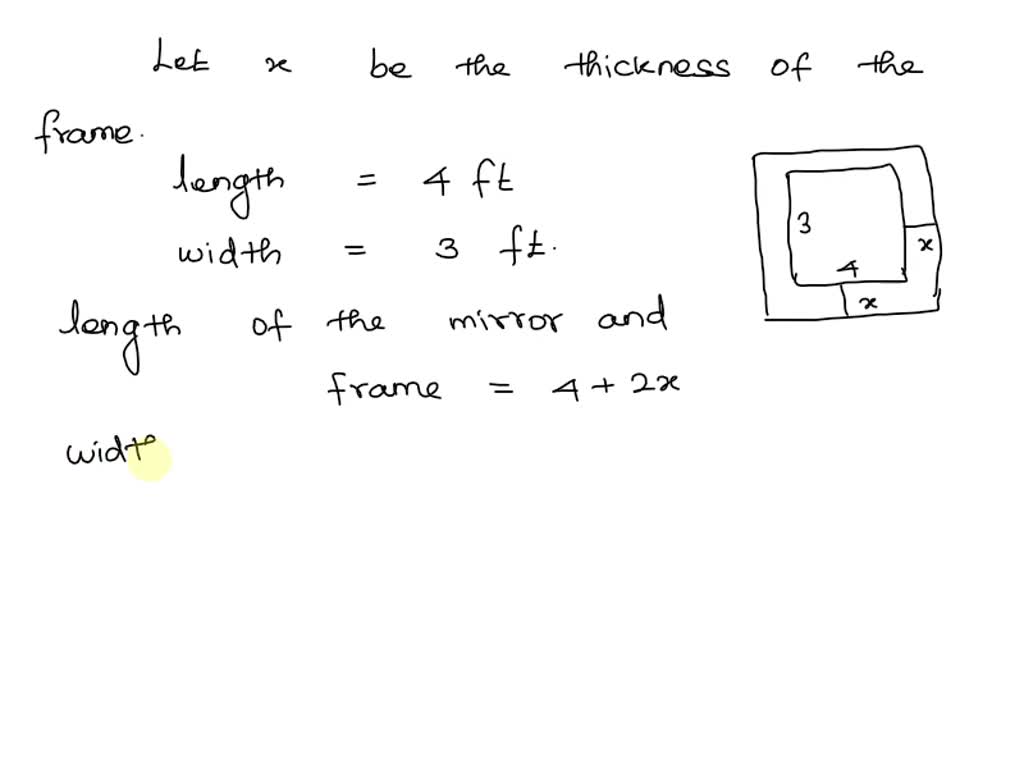 Let x be the thickness of the
frame.
length = 4 ft
width = 3 ft.
3
x
4
x
length of the mirror and
frame = 4 + 2x
widt